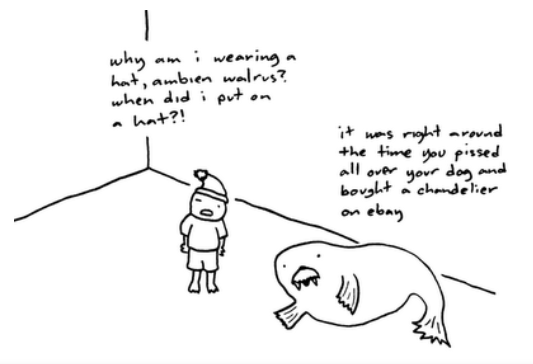 why am i wearing a
hat, ambien walrus?
when did i put on
a hat?!
it was right around
the time you pissed
all over your dog and
bought a chandelier
on ebay